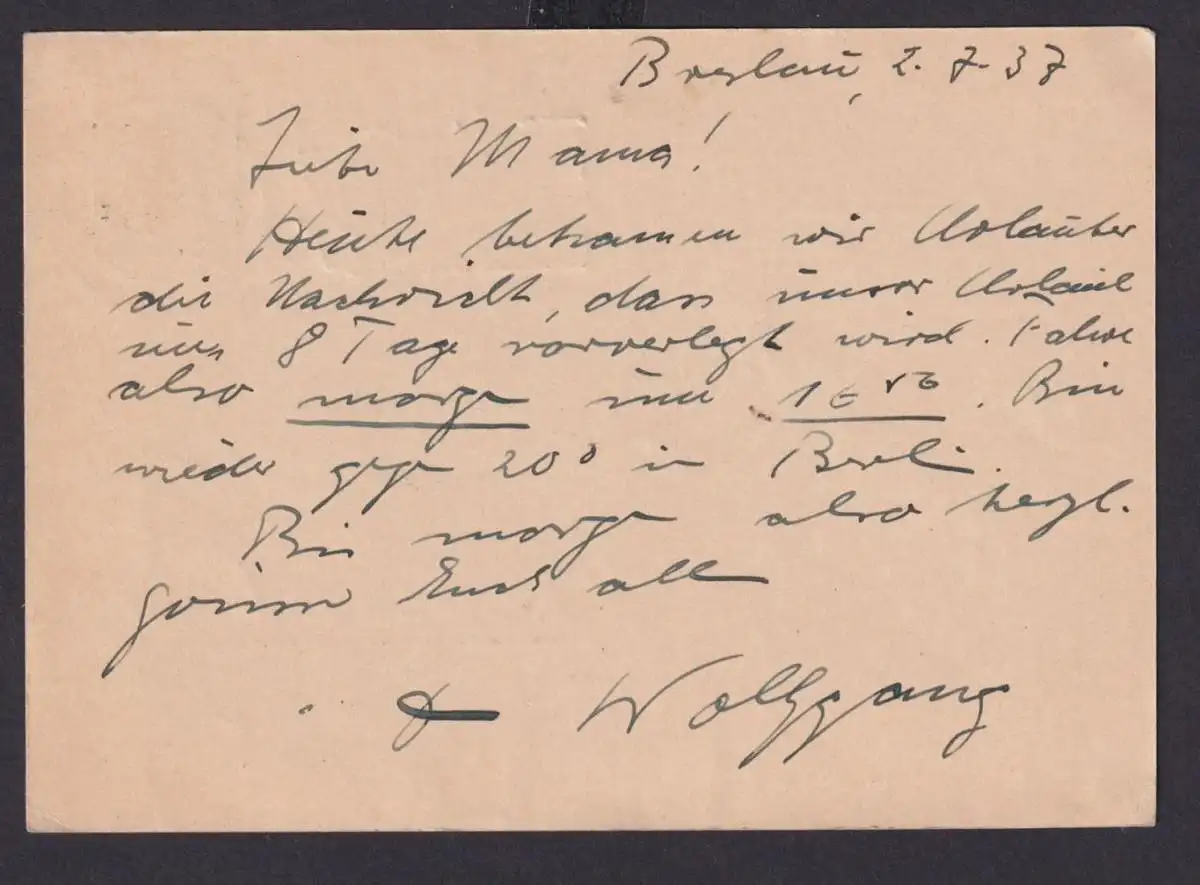 Breslau, 2.7.37
Liebe Mama!
Heute bekamen wir Urlauber
die Nachricht, dass unser Urlaub
um 8 Tage vorverlegt wird. Fahre
also morgen um 16. Bin
wieder gegen 20° in Berlin.
Bin morgen also herzl.
Euch alle
Wolfgang